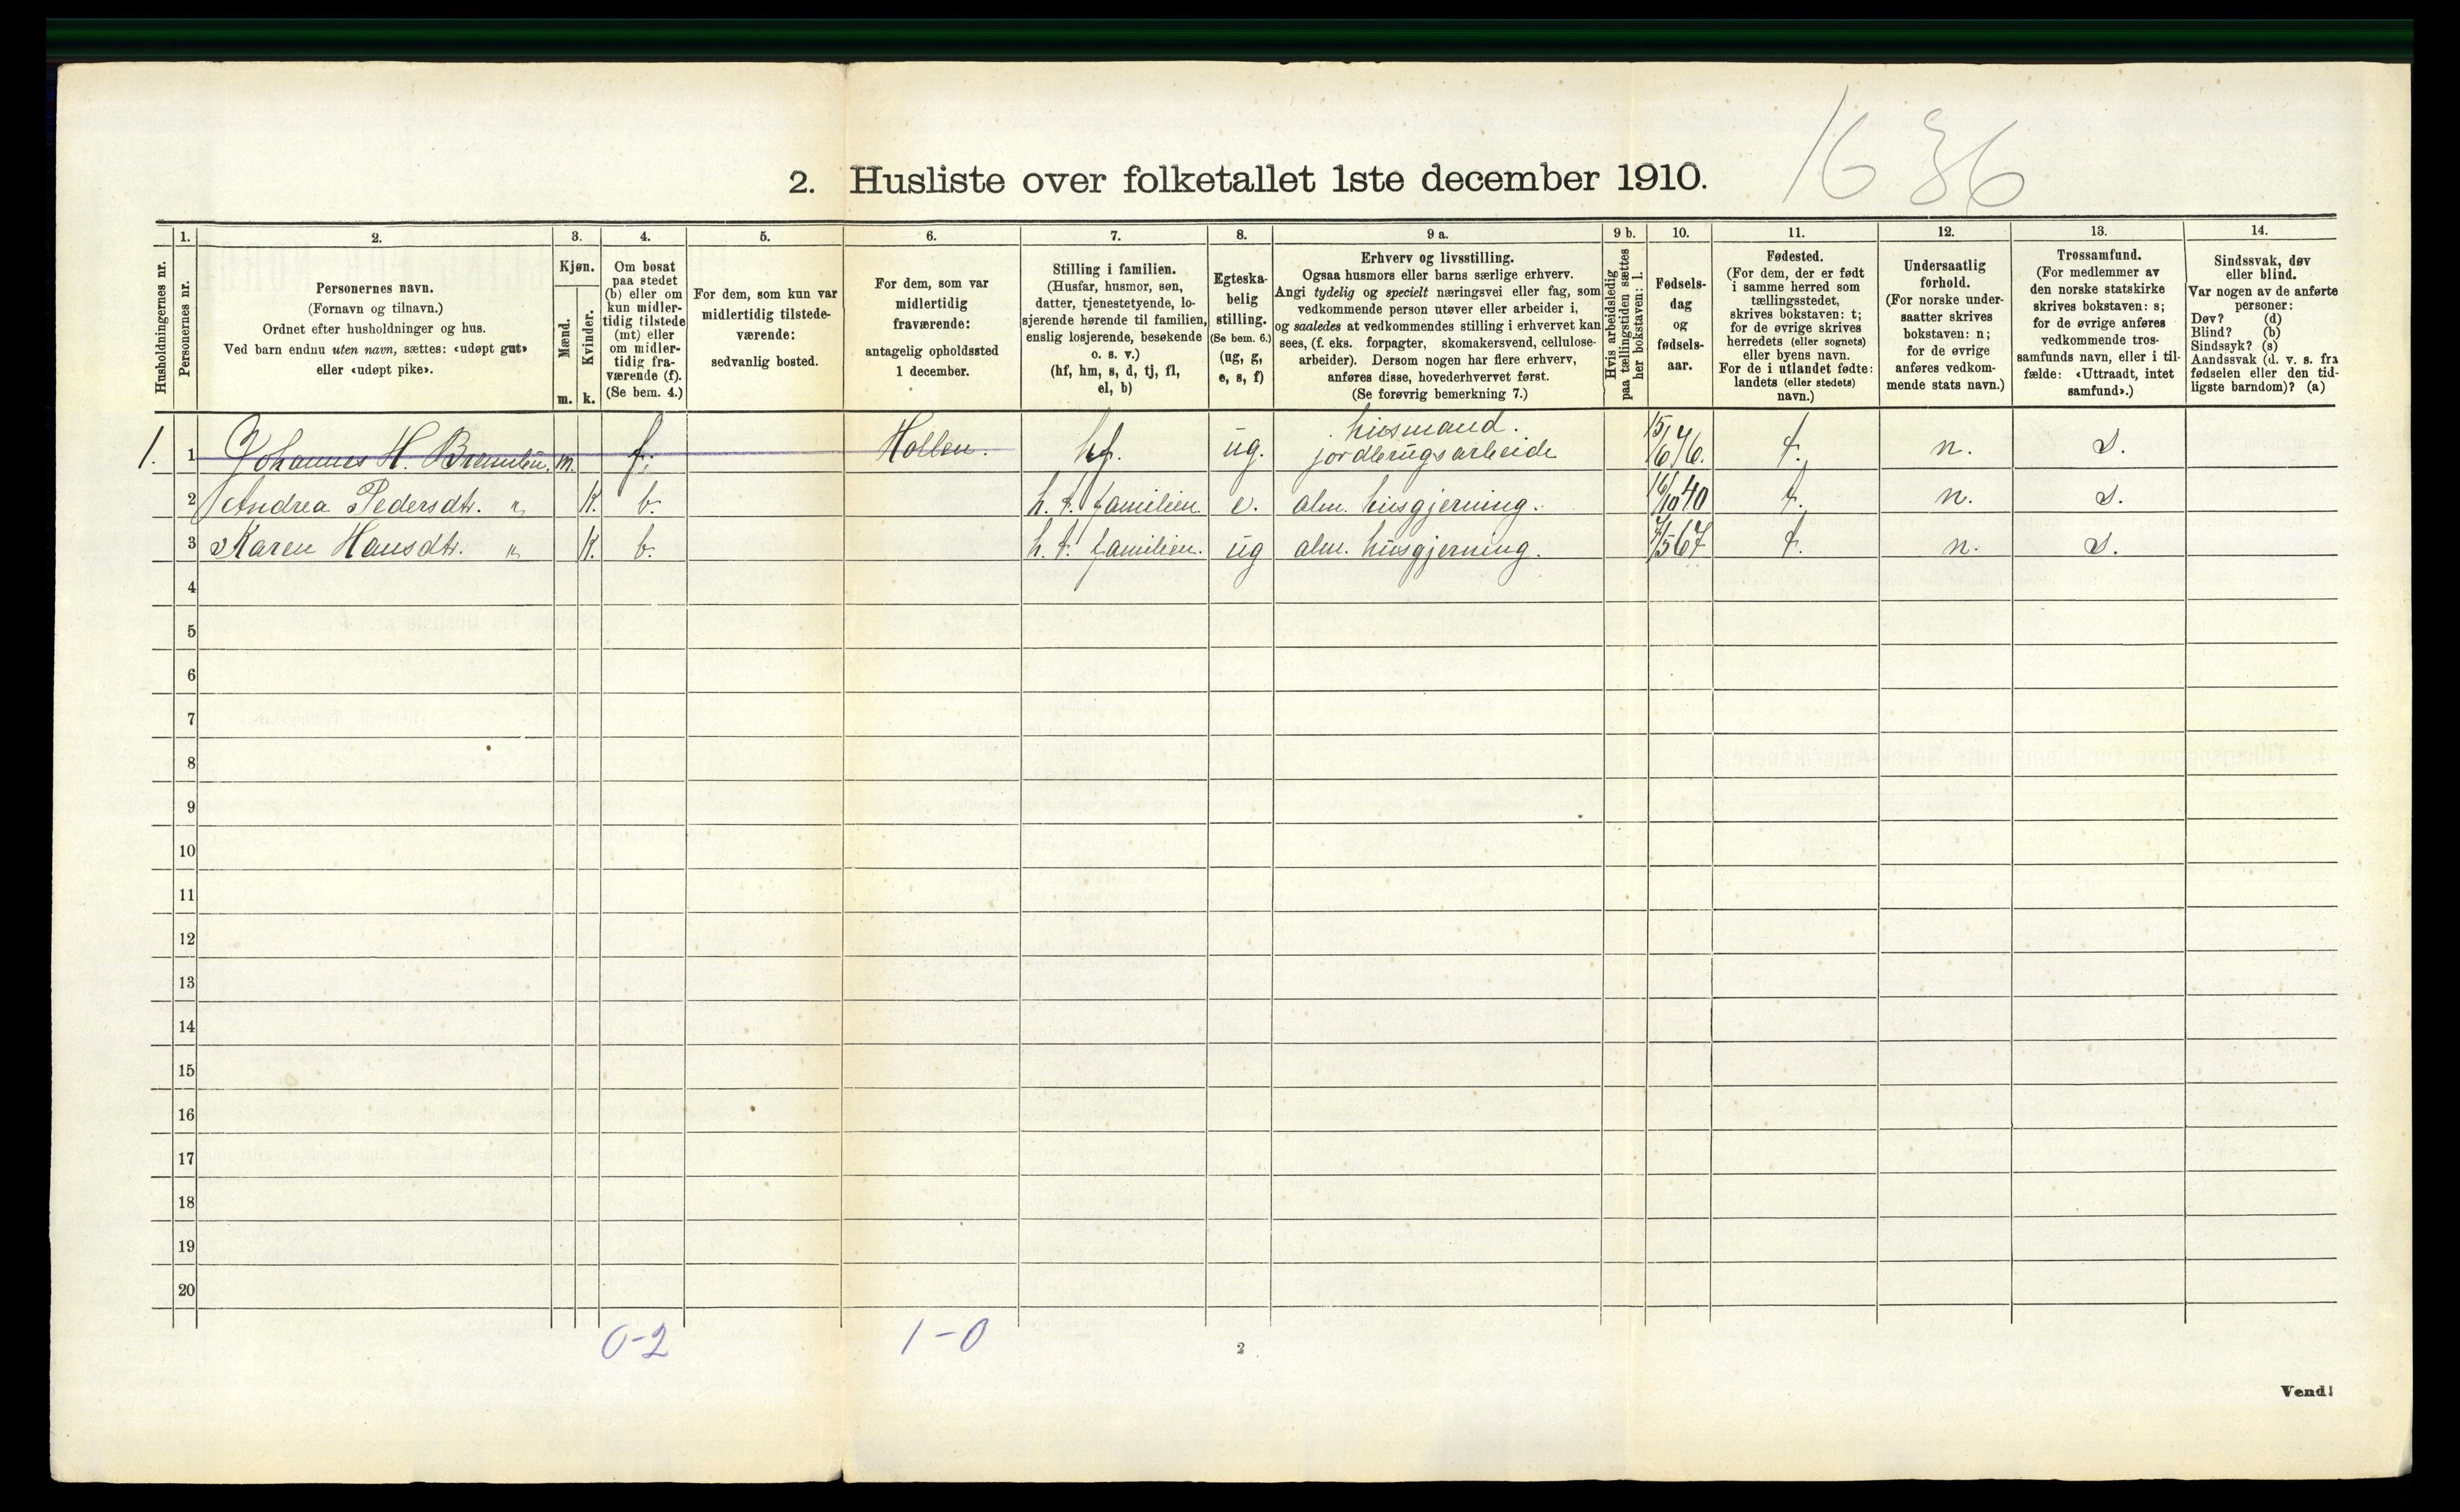 1636
2. Husliste over folketallet 1ste december 1910.
Husholdningernes nr.
1.
Personernes nr.
2.
Personernes navn.
(Fornavn og tilnavn.)
Ordnet efter husholdninger og hus.
Ved barn endnu uten navn, sættes: «udøpt gut»
eller «udøpt pike».
3.
Kjøn.
Mænd.
Kvinder.
m.
k.
4.
Om bosat
paa stedet
(b) eller om
kun midler-
tidig tilstede
(mt) eller
om midler-
tidig fra-
værende (f).
(Se bem. 4.)
5.
For dem, som kun var
midlertidig tilstede-
værende:
sedvanlig bosted.
6.
For dem, som var
midlertidig
fraværende:
antagelig opholdssted
1 december.
7.
Stilling i familien.
(Husfar, husmor, søn,
datter, tjenestetyende, lo-
sjerende hørende til familien,
enslig losjerende, besøkende
o. s. v.)
(hf, hm, s, d, tj, fl,
el, b)
8.
Egteska-
belig
stilling.
(Se bem. 6.)
(ug, g,
e, s, f)
9 a.
Erhverv og livsstilling.
Ogsaa husmors eller barns særlige erhverv.
Angi tydelig og specielt næringsvei eller fag, som
vedkommende person utøver eller arbeider i,
og saaledes at vedkommendes stilling i erhvervet kan
sees, (f. eks. forpagter, skomakersvend, cellulose-
arbeider). Dersom nogen har flere erhverv,
anføres disse, hovederhvervet først.
(Se forøvrig bemerkning 7.)
9 b.
Hvis arbeidsledig
paa tællingstiden sættes
her bokstaven: l.
10.
Fødsels-
dag
og
fødsels-
aar.
11.
Fødested.
(For dem, der er født
i samme herred som
tællingsstedet,
skrives bokstaven: t;
for de øvrige skrives
herredets (eller sognets)
eller byens navn.
For de i utlandet fødte:
landets (eller stedets)
navn.)
12.
Undersaatlig
forhold.
(For norske under-
saatter skrives
bokstaven: n;
for de øvrige
anføres vedkom-
mende stats navn.)
13.
Trossamfund.
(For medlemmer av
den norske statskirke
skrives bokstaven: s;
for de øvrige anføres
vedkommende tros-
samfunds navn, eller i til-
fælde: «Uttraadt, intet
samfund».)
14.
Sindssvak, døv
eller blind.
Var nogen av de anførte
personer:
Døv? (d)
Blind? (b)
Sindssyk? (s)
Aandssvak (d. v. s. fra
fødselen eller den tid-
ligste barndom)? (a)
husmand.
1. 1 Johannes H. m. f. hf. ug. jordbrugsarbeide 15/6 76. t. n. s.
2 Andrea Pedersdtr. " K. b. h. t. familien. e. alm. husgjerning. 16/10 40 t. n. s.
3 Karen Hansdtr. " K. b. h. t. familien. ug alm. husgjerning. 7/5 67 t. n. s.
4
5
6
7
8
9
10
11
12
13
14
15
16
17
18
19
20
0-2 1-0
2
Vend!